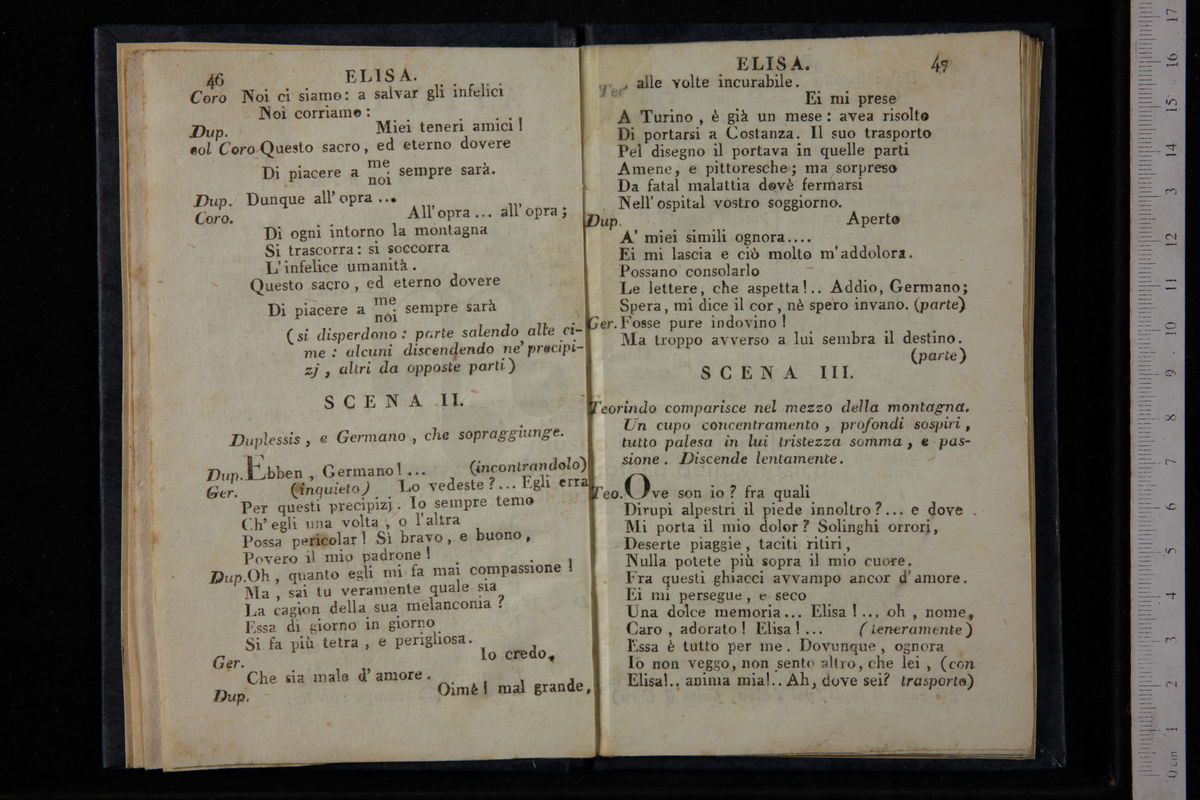 46 ELISA.
Coro Noi ci siamo: a salvar gli infelici
Noi corriamo:
Dup. Miei teneri amici!
col Coro Questo sacro, ed eterno dovere
Di piacere a me noi sempre sarà.
Dup. Dunque all'opra...
Coro. All'opra... all'opra;
Di ogni intorno la montagna
Si trascorra: si soccorra
L'infelice umanità.
Questo sacro, ed eterno dovere
Di piacere a me noi sempre sarà
(si disperdono: parte salendo alle ci-
me: alcuni discendendo ne' precipi-
zj, altri da opposte parti)
SCENA II.
Duplessis, e Germano, che sopraggiunge.
Dup. Ebben, Germano!... (incontrandolo)
Ger. (inquieto) Lo vedeste?... Egli erra
Per questi precipizj. Io sempre temo
Ch'egli una volta, o l'altra
Possa pericolar! Sì bravo, e buono,
Povero il mio padrone!
Dup. Oh, quanto egli mi fa mai compassione!
Ma, sai tu veramente quale sia
La cagion della sua melanconia?
Essa di giorno in giorno
Si fa più tetra, e perigliosa.
Ger. Io credo,
Che sia male d'amore.
Dup. Oimè! mal grande,
ELISA. 47
alle volte incurabile.
Ei mi prese
A Turino, è già un mese: avea risolto
Di portarsi a Costanza. Il suo trasporto
Pel disegno il portava in quelle parti
Amene, e pittoresche; ma sorpreso
Da fatal malattia dovè fermarsi
Nell'ospital vostro soggiorno.
Dup. Aperto
A' miei simili ognora....
Ei mi lascia e ciò molto m'addolora.
Possano consolarlo
Le lettere, che aspetta!.. Addio, Germano;
Spera, mi dice il cor, nè spero invano. (parte)
Ger. Fosse pure indovino!
Ma troppo avverso a lui sembra il destino.
(parte)
SCENA III.
Teorindo comparisce nel mezzo della montagna.
Un cupo concentramento, profondi sospiri,
tutto palesa in lui tristezza somma, e pas-
sione. Discende lentamente.
Teo. Ove son io? fra quali
Dirupi alpestri il piede innoltro?... e dove
Mi porta il mio dolor? Solinghi orrori,
Deserte piaggie, taciti ritiri,
Nulla potete più sopra il mio cuore.
Fra questi ghiacci avvampo ancor d'amore.
Ei mi persegue, e seco
Una dolce memoria... Elisa!... oh, nome,
Caro, adorato! Elisa!... (teneramente)
Essa è tutto per me. Dovunque, ognora
Io non veggo, non sento altro, che lei, (con
Elisa!.. anima mia!.. Ah, dove sei? trasporto)
0 cm 1 2 3 4 5 6 7 8 9 10 11 12 13 14 15 16 17